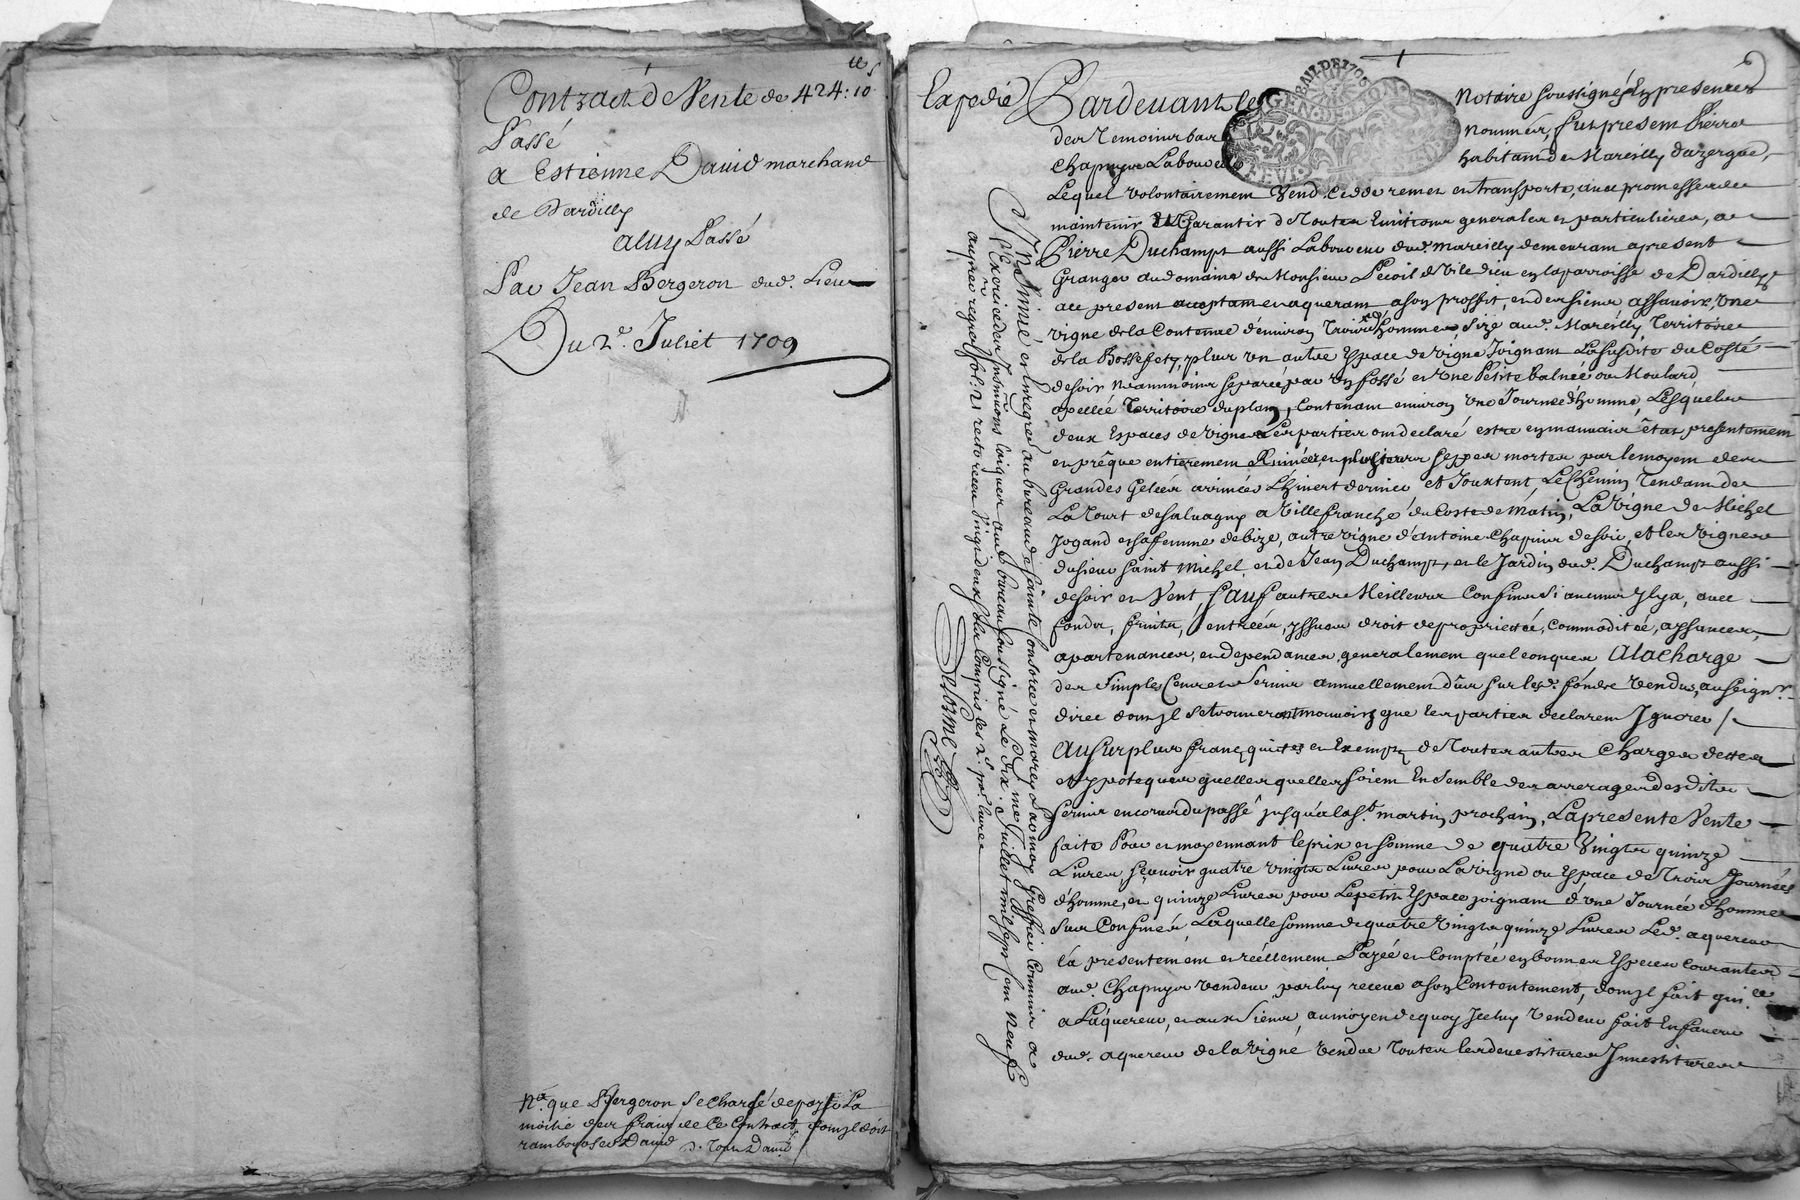 Contract de Vente de 424 ll: 10 s
Passé
a Estienne David marchand
de Dardilly
aluy Passé
Par Jean Bergeron dud. Lieu
Du 2e. Juliet 1709
Na. que Bergeron Se Chargé de payer La
moitié des frais de Ce Contract, dont Il doit
rambourser David
Expedié
Pardevant le Notaire soussigné, En presence
des Temoins bas nommés, fut present Pierre
Chapuys Laboureur habitant de Mareilly dazergue,
Lequel volontairement Vend Cedde remet et transporte, avec promesse de
maintenir Et Garantir de Toutes Evictions generales et particulieres, a
Pierre Duchamps aussi Laboureur dud. mareilly demeurant apresent
Granger au domaine de Monsieur Pecoil de Vile dieu en la parroisse de Dardilly
ace present acceptant et aquerant a son proffit, et des siens assavoir Une
vigne de la Contenue d'environ Trois hommées, Size aud. Mareilly Territoire
de la Bossefety, plus un autre Espace de vigne Joignant La susdite du Costé
de soir Neanmoins separée par un fossé et une Petite balnée ou Moulard
apellée Territoire du plan, Contenant environ une Journée d'homme, Lesqueles
deux Espaces de vignes Les parties ont declaré estre en mauvais êtat presentement
et prêque entierement Ruinées, et plusieurs seppes mortes par le moyem des
Grandes Gelées arrivées L'hivert dernier et Jouxtent, Le Chemin Tendant de
La Tourt de salvagny a Villefranche du Costé de Matin, La Vigne de Michel
Jogand et sa femme de bize, autre vigne d'antoine Chapuis de soir, et les vignes
du sieur saint Michel, et de Jean Duchamps, et le Jardin dud. Duchamps aussi
de soir et Vent, sauf autres Meilleurs Confins si aucuns Il y a, avec
fonds, fruits, entrées, yssues droit de proprieteé, Commoditeé, aysances,
apartenances, et dependances generalement quelconques Ala Charge
des simples Cens et Servis annuellement dûs sur lesd. fonds Vendus, au seignr.
direc dont Il se trouveront mouvoir que les parties declarent Ignorer /
Au surplus franc, quites et Exempt de Toutes autres Charges dettes
et ypoteques quelles quelles soient Ensemble des arrerages desdits
servis encourus du passé jusqu'a la St. martin prochain, La presente Vente
faite Pour et moyennant le prix et somme de quatre Vingts quinze
Livres, sçavoir quatre vingts Livres pour La vigne ou Espace de Trois Journées
d'homme, et quinze Livres pour Le petit Espace joignant d'une Journée d'homme
sus Confinés, Laquelle somme de quatre Vingts quinze Livres Led. aquereur
a presentement et reéllement Payée et Comptée en bonnes Especes Courantes
aud. Chapuys vendeur par luy receue a son Contentement, dont Il fait quitce
a L'aquereur, et aux siens, au moyen de quoy Iceluy Vendeur fait En faveur
dud. aquereur de la vigne vendue Toutes les devestitures Investitures
Insinué et Enregré au bureau de sainte Consorce et morey Par moy Greffier Commis a
L'Exercice des Insinuõns laiques aud. bureau soussigné Le dix. Juillet mil sept Cent Neuf
au pnt. regre fol: 21 recto receu
Delorme